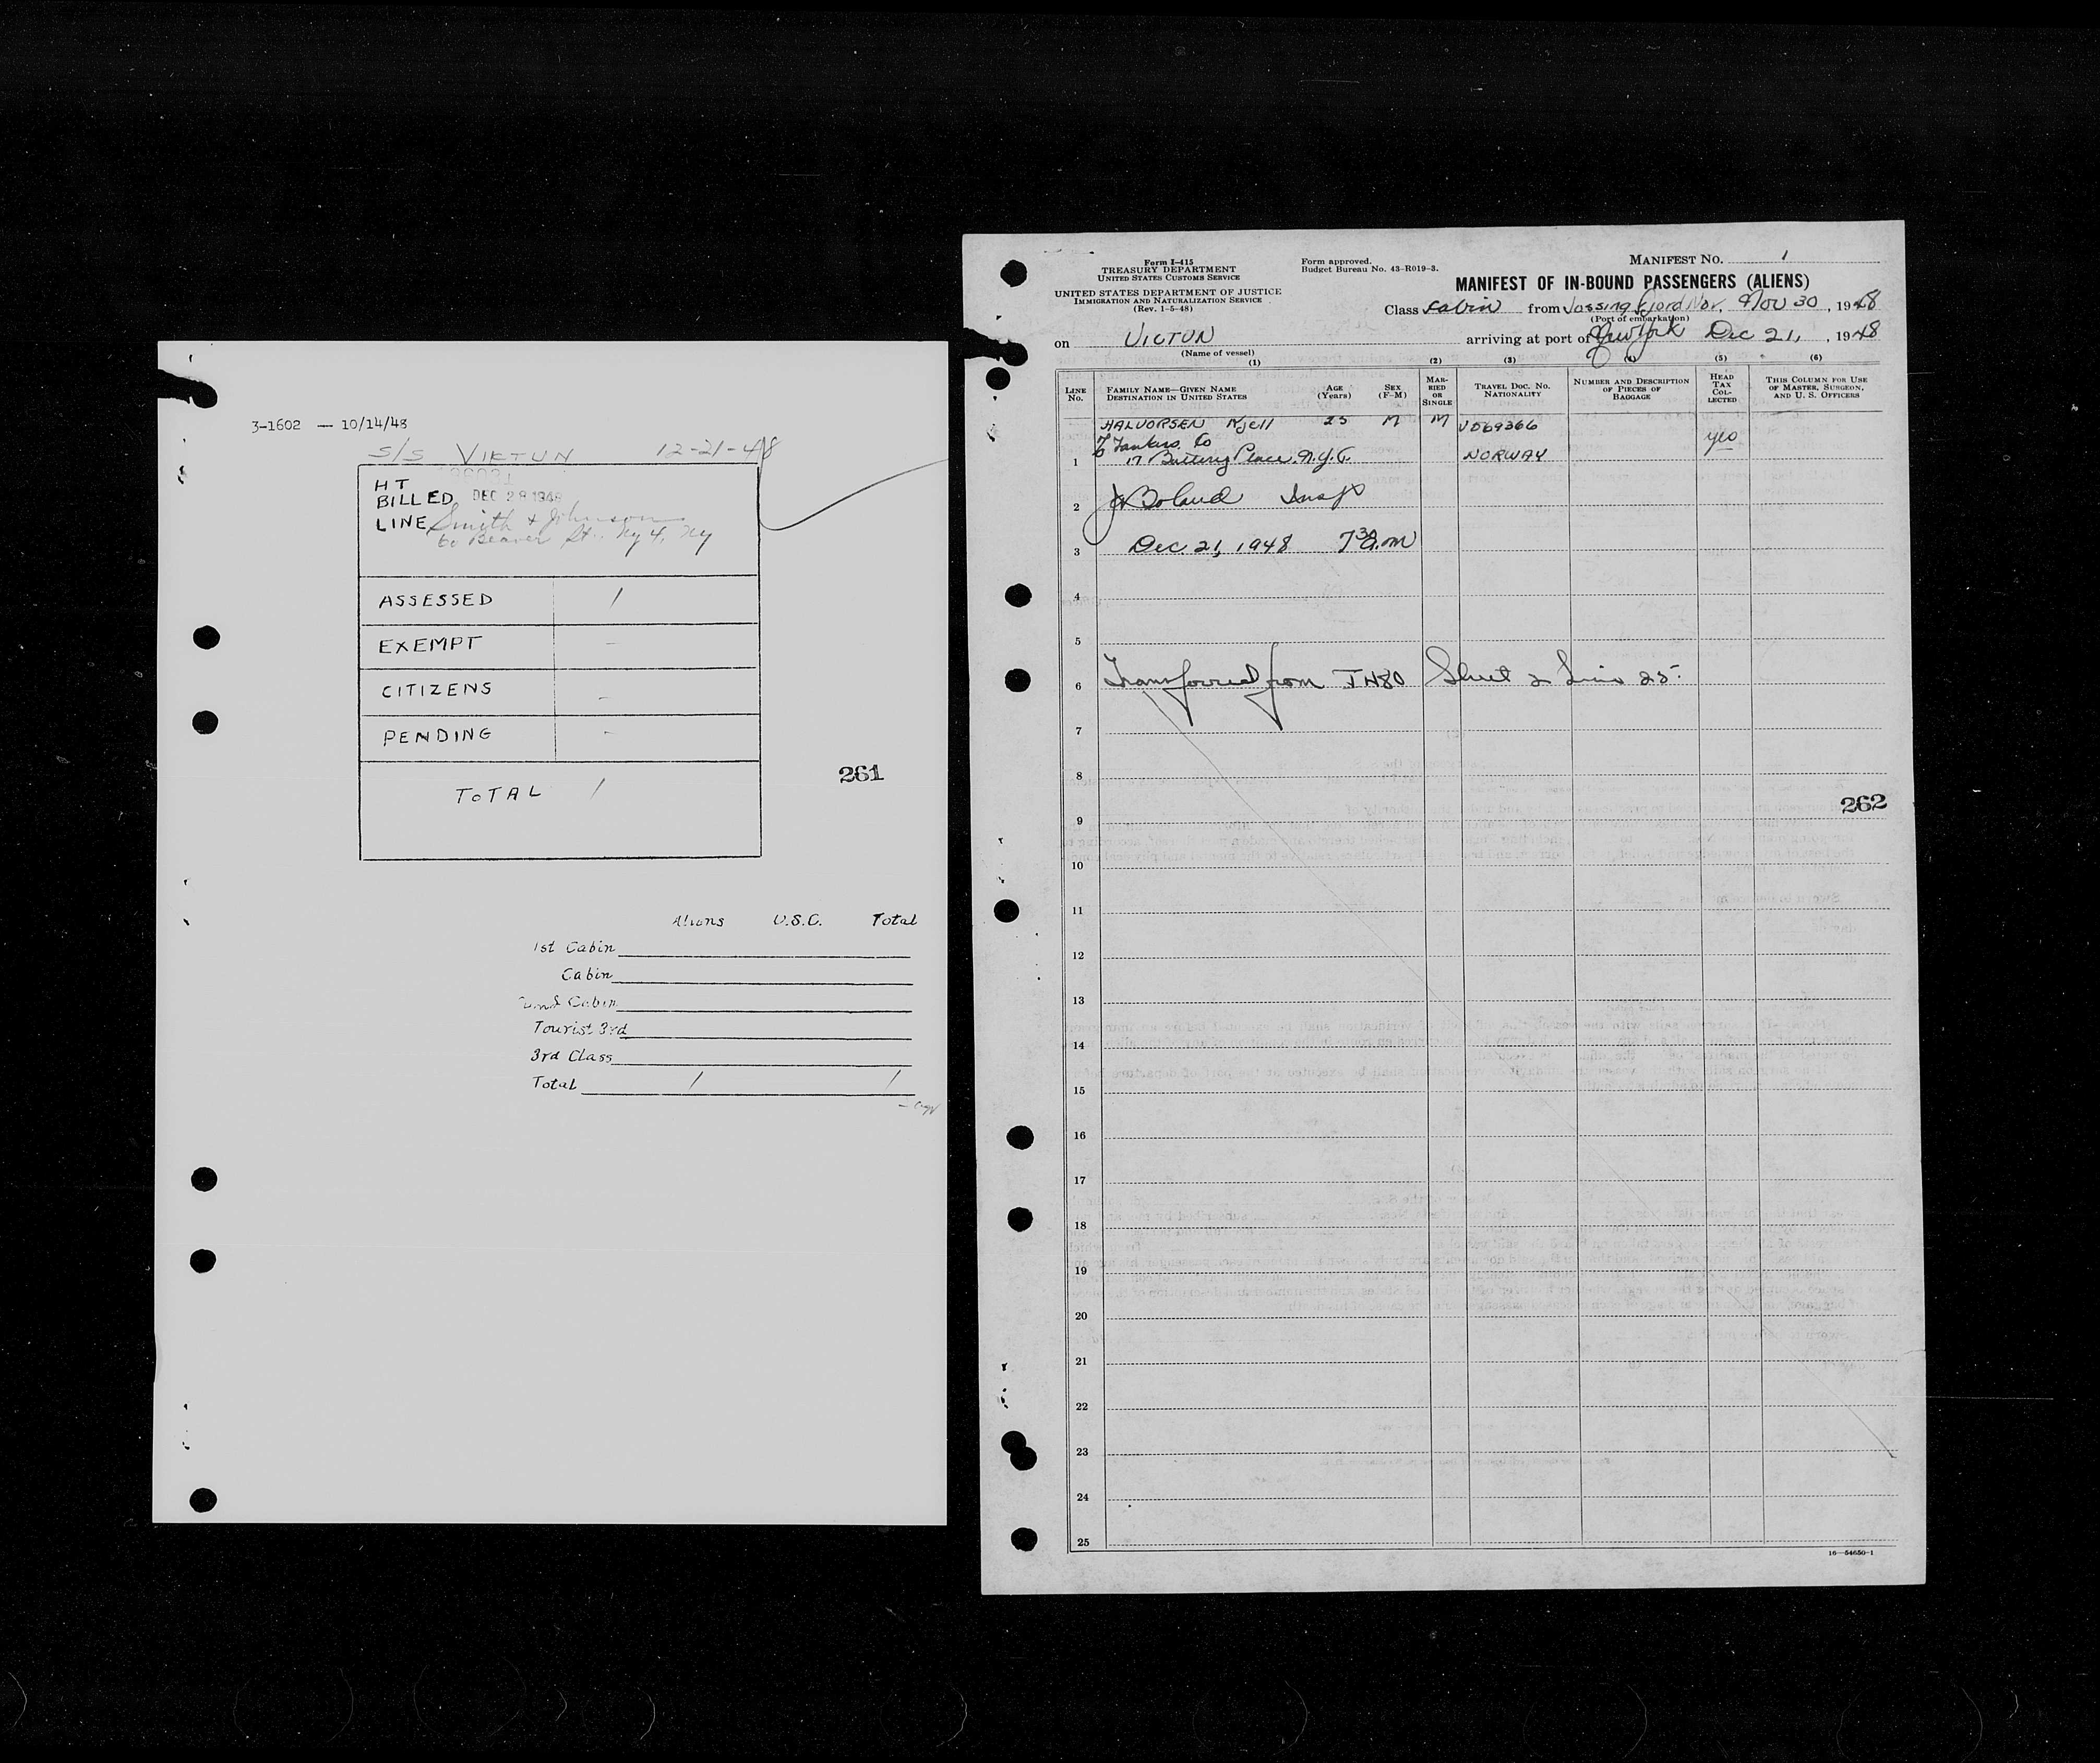 3-1602 — 10/14/48
S/S VIKTUN 12-21-48
HT
BILLED DEC 28 1948
LINE Smith & Johnson
60 Beaver St. Ny 4, Ny
ASSESSED 1
EXEMPT -
CITIZENS -
PENDING -
TOTAL 1
261
Aliens U.S.C. Total
1st Cabin
Cabin
Cabin
Tourist 3rd
3rd Class
Total 1 1
Form I-415
TREASURY DEPARTMENT
UNITED STATES CUSTOMS SERVICE
UNITED STATES DEPARTMENT OF JUSTICE
IMMIGRATION AND NATURALIZATION SERVICE
(Rev. 1-5-48)
Form approved.
Budget Bureau No. 43-R019-3.
MANIFEST NO. 1
MANIFEST OF IN-BOUND PASSENGERS (ALIENS)
Class Cabin from Jossing Fjord Nor. Nov 30, 1948
(Port of embarkation)
on VICTUN arriving at port of New York Dec 21, 1948
(Name of vessel)
(1) (2) (3) (4) (5) (6)
LINE No. FAMILY NAME—GIVEN NAME DESTINATION IN UNITED STATES AGE (Years) SEX (F-M) MARRIED OR SINGLE TRAVEL DOC. NO. NATIONALITY NUMBER AND DESCRIPTION OF PIECES OF BAGGAGE HEAD TAX COLLECTED THIS COLUMN FOR USE OF MASTER, SURGEON, AND U. S. OFFICERS
HALVORSEN Kjell 25 M M V569366 yes
% Tankers Co
1 17 Battery Place. N.Y.C. NORWAY
2 Boland Insp
3 Dec 21, 1948 7 30 a.m
4
5
6 Transferred from I 480 Sheet 2 Line 25.
7
8
262
9
10
11
12
13
14
15
16
17
18
19
20
21
22
23
24
25
16—54650-1